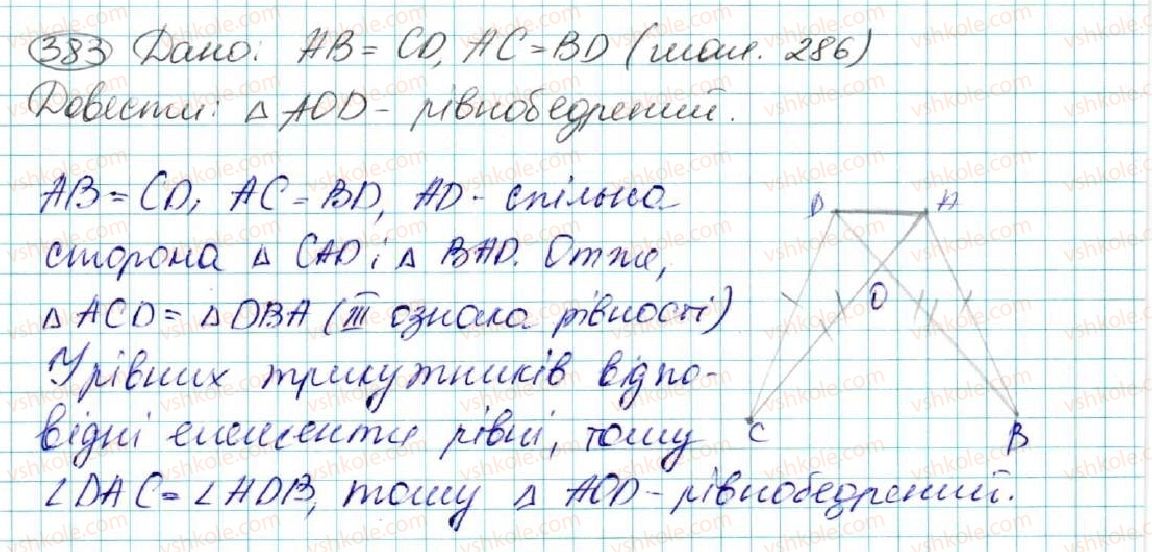 383 Дано: AB = CD, AC = BD (мал. 286)
Довести: △ AOD - рівнобедрений.
AB = CD, AC = BD, AD - спільна
сторона △ CAD і △ BAD. Отже,
△ ACD = △ DBA (III ознака рівності)
У рівних трикутників відпо-
відні елементи рівні, тому
∠DAC = ∠ADB, тому △ AOD - рівнобедрений.
D A
O
C B
vshkole.com